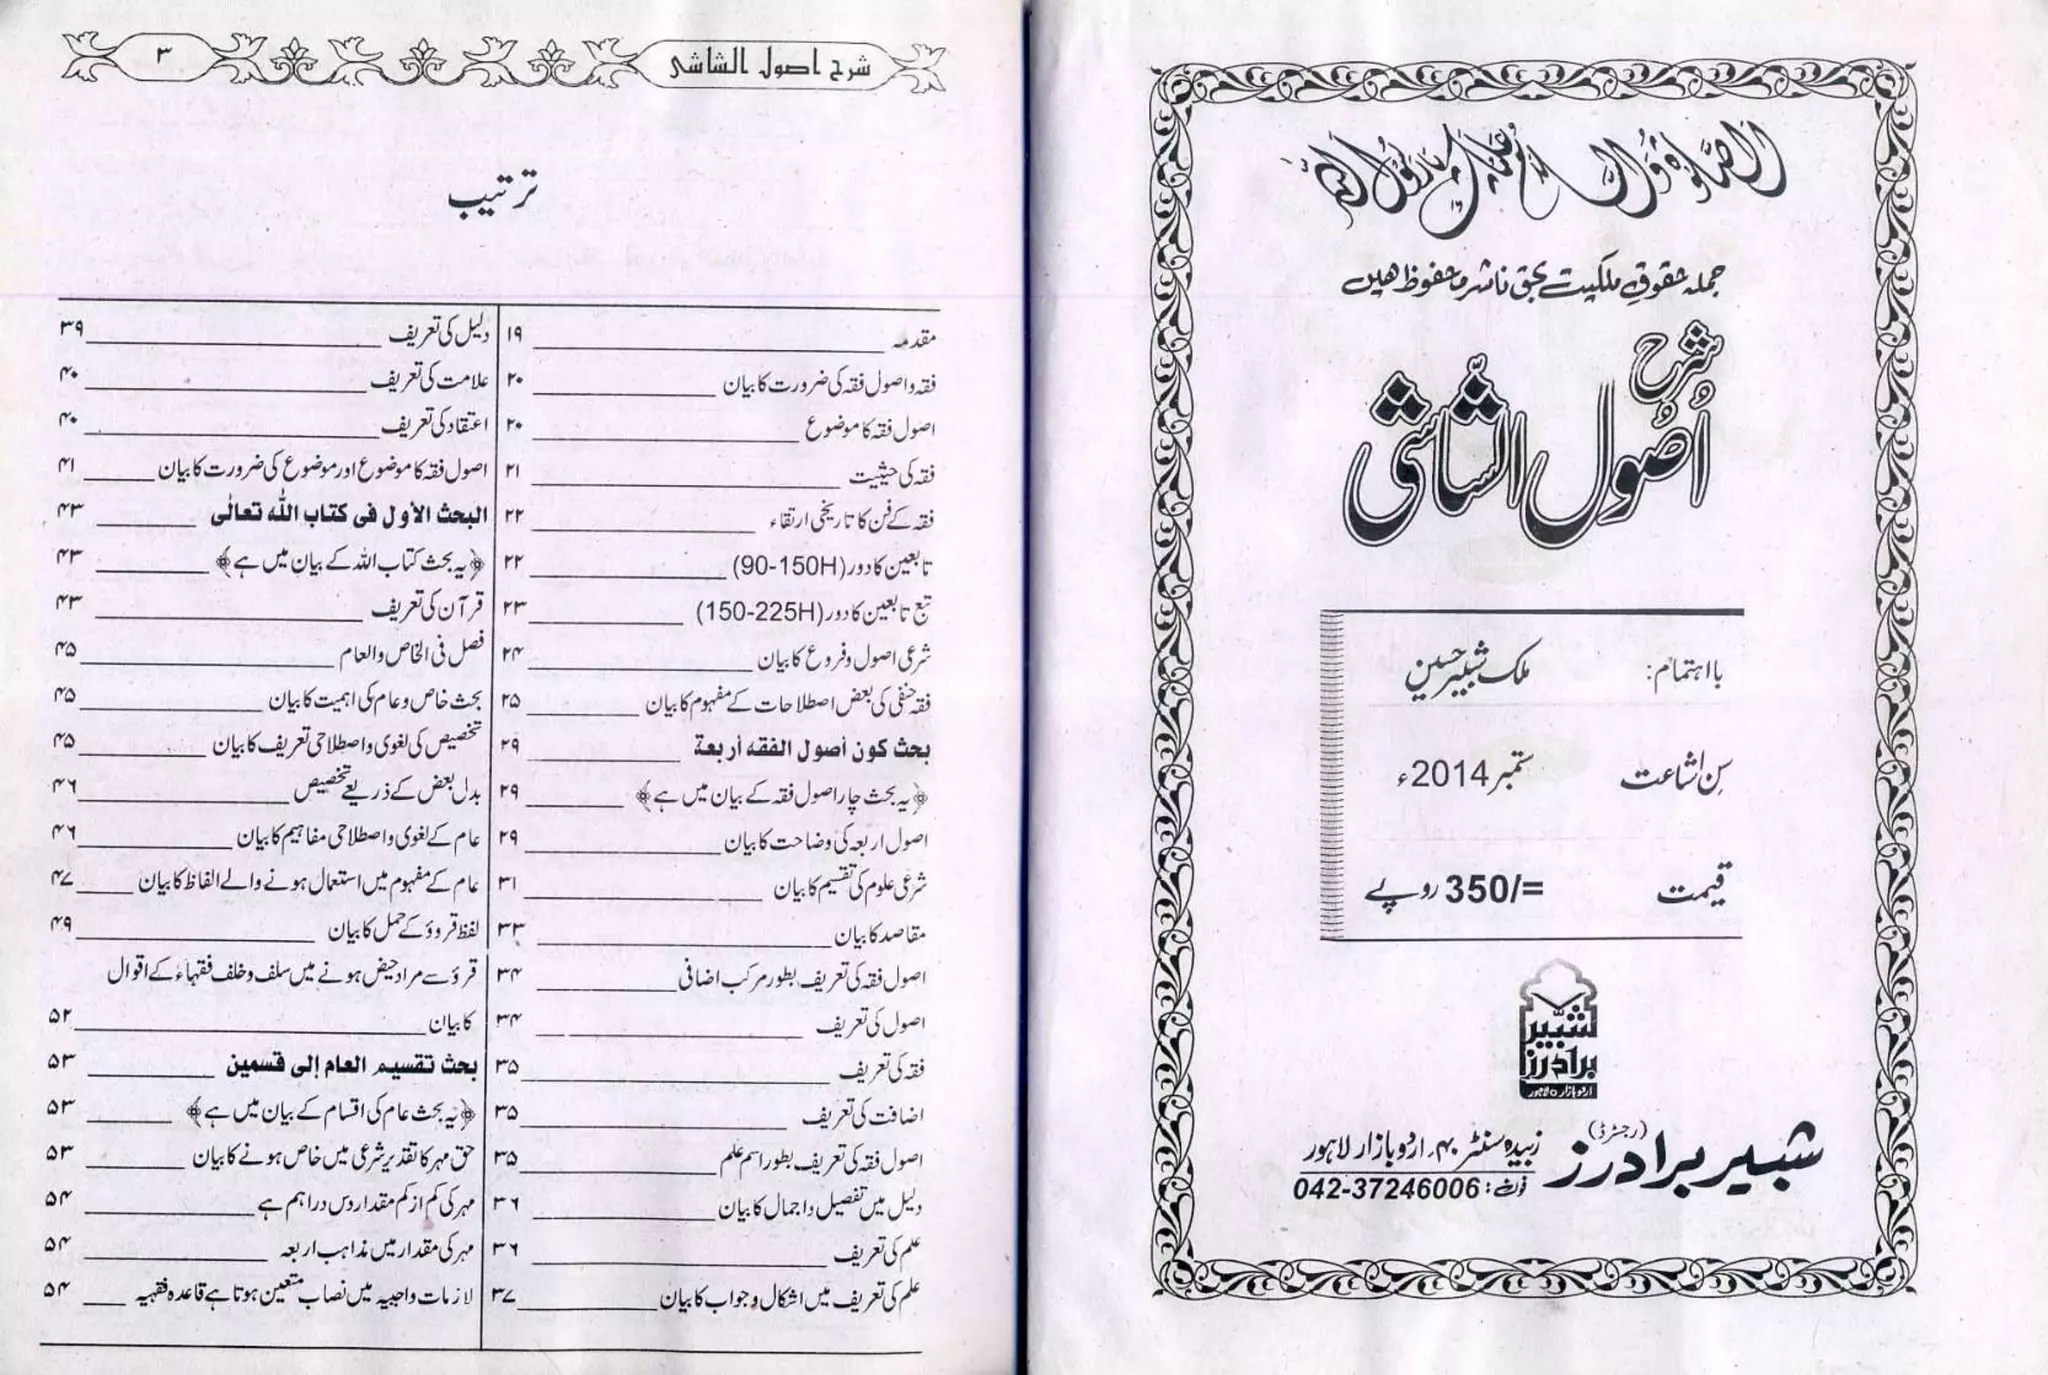 الصلوٰة والسلام عليك يا رسول الله
جملہ حقوق ملکیت بحق ناشر محفوظ ھیں
شرح
اُصُول الشّاشی
بااہتمام: ملک شبیر حسین
سن اشاعت ستمبر 2014ء
قیمت 350/= روپے
شبیر
برادرز
اردو بازار لاہور
شبیر برادرز (رجسٹرڈ)
زبیدہ سنٹر ۴۰۔ اردو بازار لاہور
فون: 042-37246006
شرح اصول الشاشی ۳
ترتیب
مقدمہ ۱۹
فقہ و اصول فقہ کی ضرورت کا بیان ۲۰
اصول فقہ کا موضوع ۲۰
فقہ کی حیثیت ۲۱
فقہ کے فن کا تاریخی ارتقاء ۲۲
تابعین کا دور (90-150H) ۲۲
تبع تابعین کا دور (150-225H) ۲۳
شرعی اصول و فروع کا بیان ۲۴
فقہ حنفی کی بعض اصطلاحات کے مفہوم کا بیان ۲۵
بحث کون أصول الفقه أربعة ۲۹
﴿یہ بحث چار اصول فقہ کے بیان میں ہے﴾ ۲۹
اصول اربعہ کی وضاحت کا بیان ۲۹
شرعی علوم کی تقسیم کا بیان ۳۱
مقاصد کا بیان ۳۳
اصول فقہ کی تعریف بطور مرکب اضافی ۳۴
اصول کی تعریف ۳۴
فقہ کی تعریف ۳۵
اضافت کی تعریف ۳۵
اصول فقہ کی تعریف بطور اسم علم ۳۵
دلیل میں تفصیل و اجمال کا بیان ۳۶
علم کی تعریف ۳۶
علم کی تعریف میں اشکال و جواب کا بیان ۳۷
دلیل کی تعریف ۳۹
علامت کی تعریف ۴۰
اعتقاد کی تعریف ۴۰
اصول فقہ کا موضوع اور موضوع کی ضرورت کا بیان ۴۱
البحث الأول فی كتاب الله تعالٰی ۴۳
﴿یہ بحث کتاب اللہ کے بیان میں ہے﴾ ۴۳
قرآن کی تعریف ۴۳
فصل فی الخاص والعام ۴۵
بحث خاص و عام کی اہمیت کا بیان ۴۵
تخصیص کی لغوی و اصطلاحی تعریف کا بیان ۴۵
بدل بعض کے ذریعے تخصیص ۴۶
عام کے لغوی و اصطلاحی مفاہیم کا بیان ۴۶
عام کے مفہوم میں استعمال ہونے والے الفاظ کا بیان ۴۷
لفظ قروؤ کے حمل کا بیان ۴۹
قرؤ سے مراد حیض ہونے میں سلف و خلف فقہاء کے اقوال
کا بیان ۵۲
بحث تقسیم العام إلى قسمین ۵۳
﴿یہ بحث عام کی اقسام کے بیان میں ہے﴾ ۵۳
حق مہر کا تقدیر شرعی میں خاص ہونے کا بیان ۵۳
مہر کی کم از کم مقدار دس دراہم ہے ۵۴
مہر کی مقدار میں مذاہب اربعہ ۵۴
لازمات واجبیہ میں نصاب متعین ہوتا ہے قاعدہ فقہیہ ۵۴